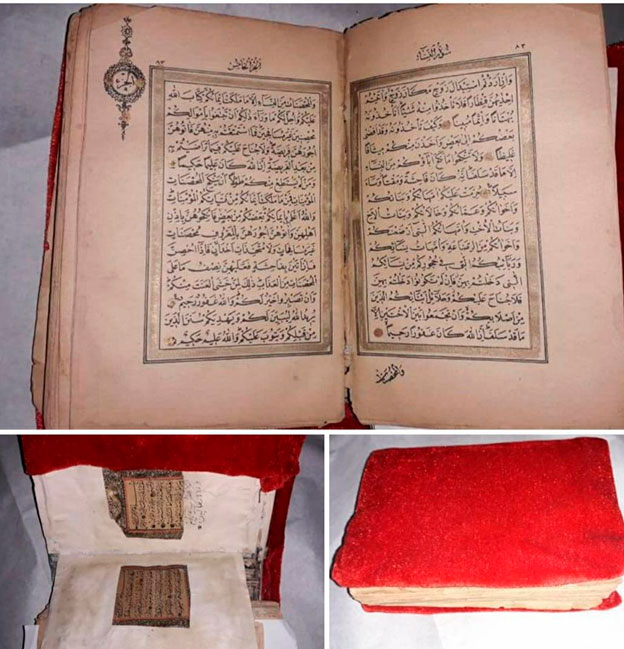 سورة النساء ٨٢
وان اردتم استبدال زوج مكان زوج واتيتم
احديهن قنطارا فلا تاخذوا منه شيئا اتاخذونه
بهتانا واثما مبينا وكيف تاخذونه وقد افضى
بعضكم الى بعض واخذن منكم ميثاقا
غليظا ولا تنكحوا ما نكح اباؤكم من النساء
الا ما قد سلف انه كان فاحشة ومقتا وساء
سبيلا حرمت عليكم امهاتكم وبناتكم
واخواتكم وعماتكم وخالاتكم وبنات الاخ
وبنات الاخت وامهاتكم التى ارضعنكم
واخواتكم من الرضاعة وامهات نسائكم
وربائبكم التى فى حجوركم من نسائكم
التى دخلتم بهن فان لم تكونوا دخلتم بهن
فلا جناح عليكم وحلائل ابنائكم الذين
من اصلابكم وان تجمعوا بين الاختين الا
ما قد سلف ان الله كان غفورا رحيما
والمحصنات
٨٣ الجزء الخامس
الجزء
والمحصنات من النساء الا ما ملكت ايمانكم كتاب الله
عليكم واحل لكم ما وراء ذلكم ان تبتغوا باموالكم
محصنين غير مسافحين فما استمتعتم به منهن فاتوهن
اجورهن فريضة ولا جناح عليكم فيما تراضيتم به
من بعد الفريضة ان الله كان عليما حكيما
ومن لم يستطع منكم طولا ان ينكح المحصنات
المؤمنات فمن ما ملكت ايمانكم من فتياتكم المؤمنات
والله اعلم بايمانكم بعضكم من بعض فانكحوهن باذن
اهلهن واتوهن اجورهن بالمعروف محصنات
غير مسافحات ولا متخذات اخدان فاذا احصن
فان اتين بفاحشة فعليهن نصف ما على
المحصنات من العذاب ذلك لمن خشى العنت منكم
وان تصبروا خير لكم والله غفور رحيم
يريد الله ليبين لكم ويهديكم سنن الذين
من قبلكم ويتوب عليكم والله عليم حكيم